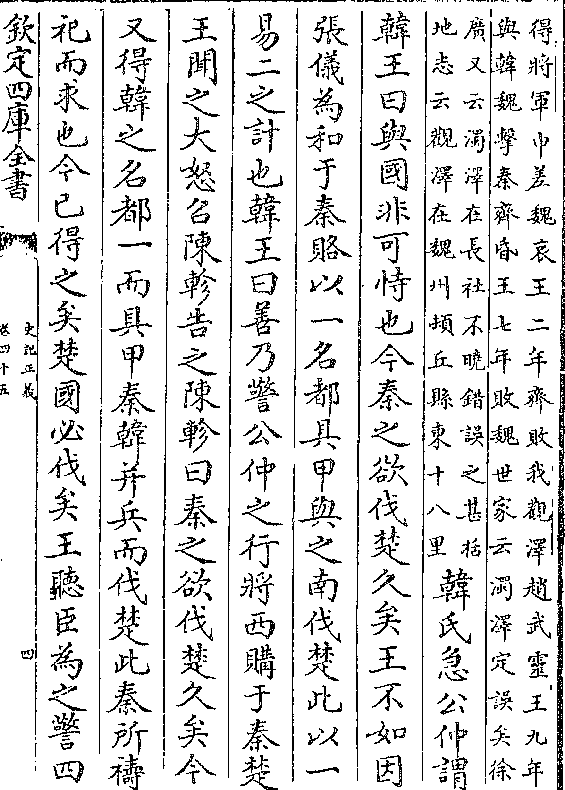 得將軍巾差魏哀王二年齊敗我觀澤趙武靈王九年
與韓魏擊秦齊昏王七年敗魏世家云濁澤定誤矣徐
廣又云濁澤在長社不曉錯誤之甚括
地志云觀澤在魏州頓丘縣東十八里
韓氏急公仲謂
韓王曰與國非可恃也今秦之欲伐楚久矣王不如因
張儀為和于秦賂以一名都具甲與之南伐楚此以一
易二之計也韓王曰善乃警公仲之行將西購于秦楚
王聞之大怒召陳軫告之陳軫曰秦之欲伐楚久矣今
又得韓之名都一而具甲秦韓并兵而伐楚此秦所禱
祀而求也今已得之矣楚國必伐矣王聽臣為之警四
欽定四庫全書
史記正義
卷四十五
四